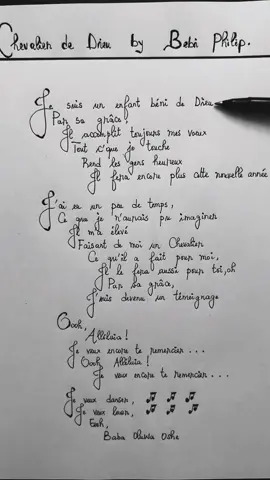 Chevalier de Dieu by Bebi Philip.
Je suis un enfant béni de Dieu,
Par sa grâce,
Il accomplit toujours mes vœux
Tout c'que je touche
Rend les gens heureux
Il fera encore plus cette nouvelle année
J'ai eu un peu de temps,
Ce que je n'aurais pu imaginer
Il m'a élevé
Faisant de moi un Chevalier
Ce qu'il a fait pour moi,
Il le fera aussi pour toi, oh
Par sa grâce,
J'suis devenu un témoignage
Oooh,
Alléluia !
Je veux encore te remercier ...
Oooh Alléluia !
Je veux encore te remercier ...
Je veux danser,
Je veux louer,
Eeeh,
Baba Oluwa Oshe